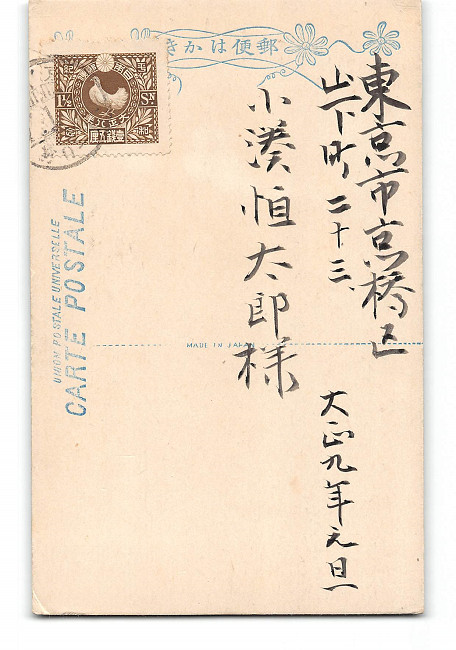 郵便はかき
東京市京橋区
山下町二十三、
小湊恒太郎様
大正九年元旦
MADE IN JAPAN
UNION POSTALE UNIVERSELLE
CARTE POSTALE
1½ SN
大正八年
壹銭五厘